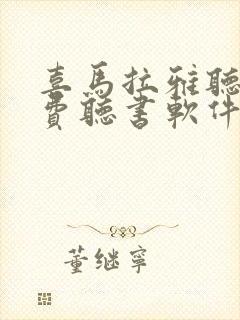 喜馬拉雅聽
費聽書軟件
董继寧